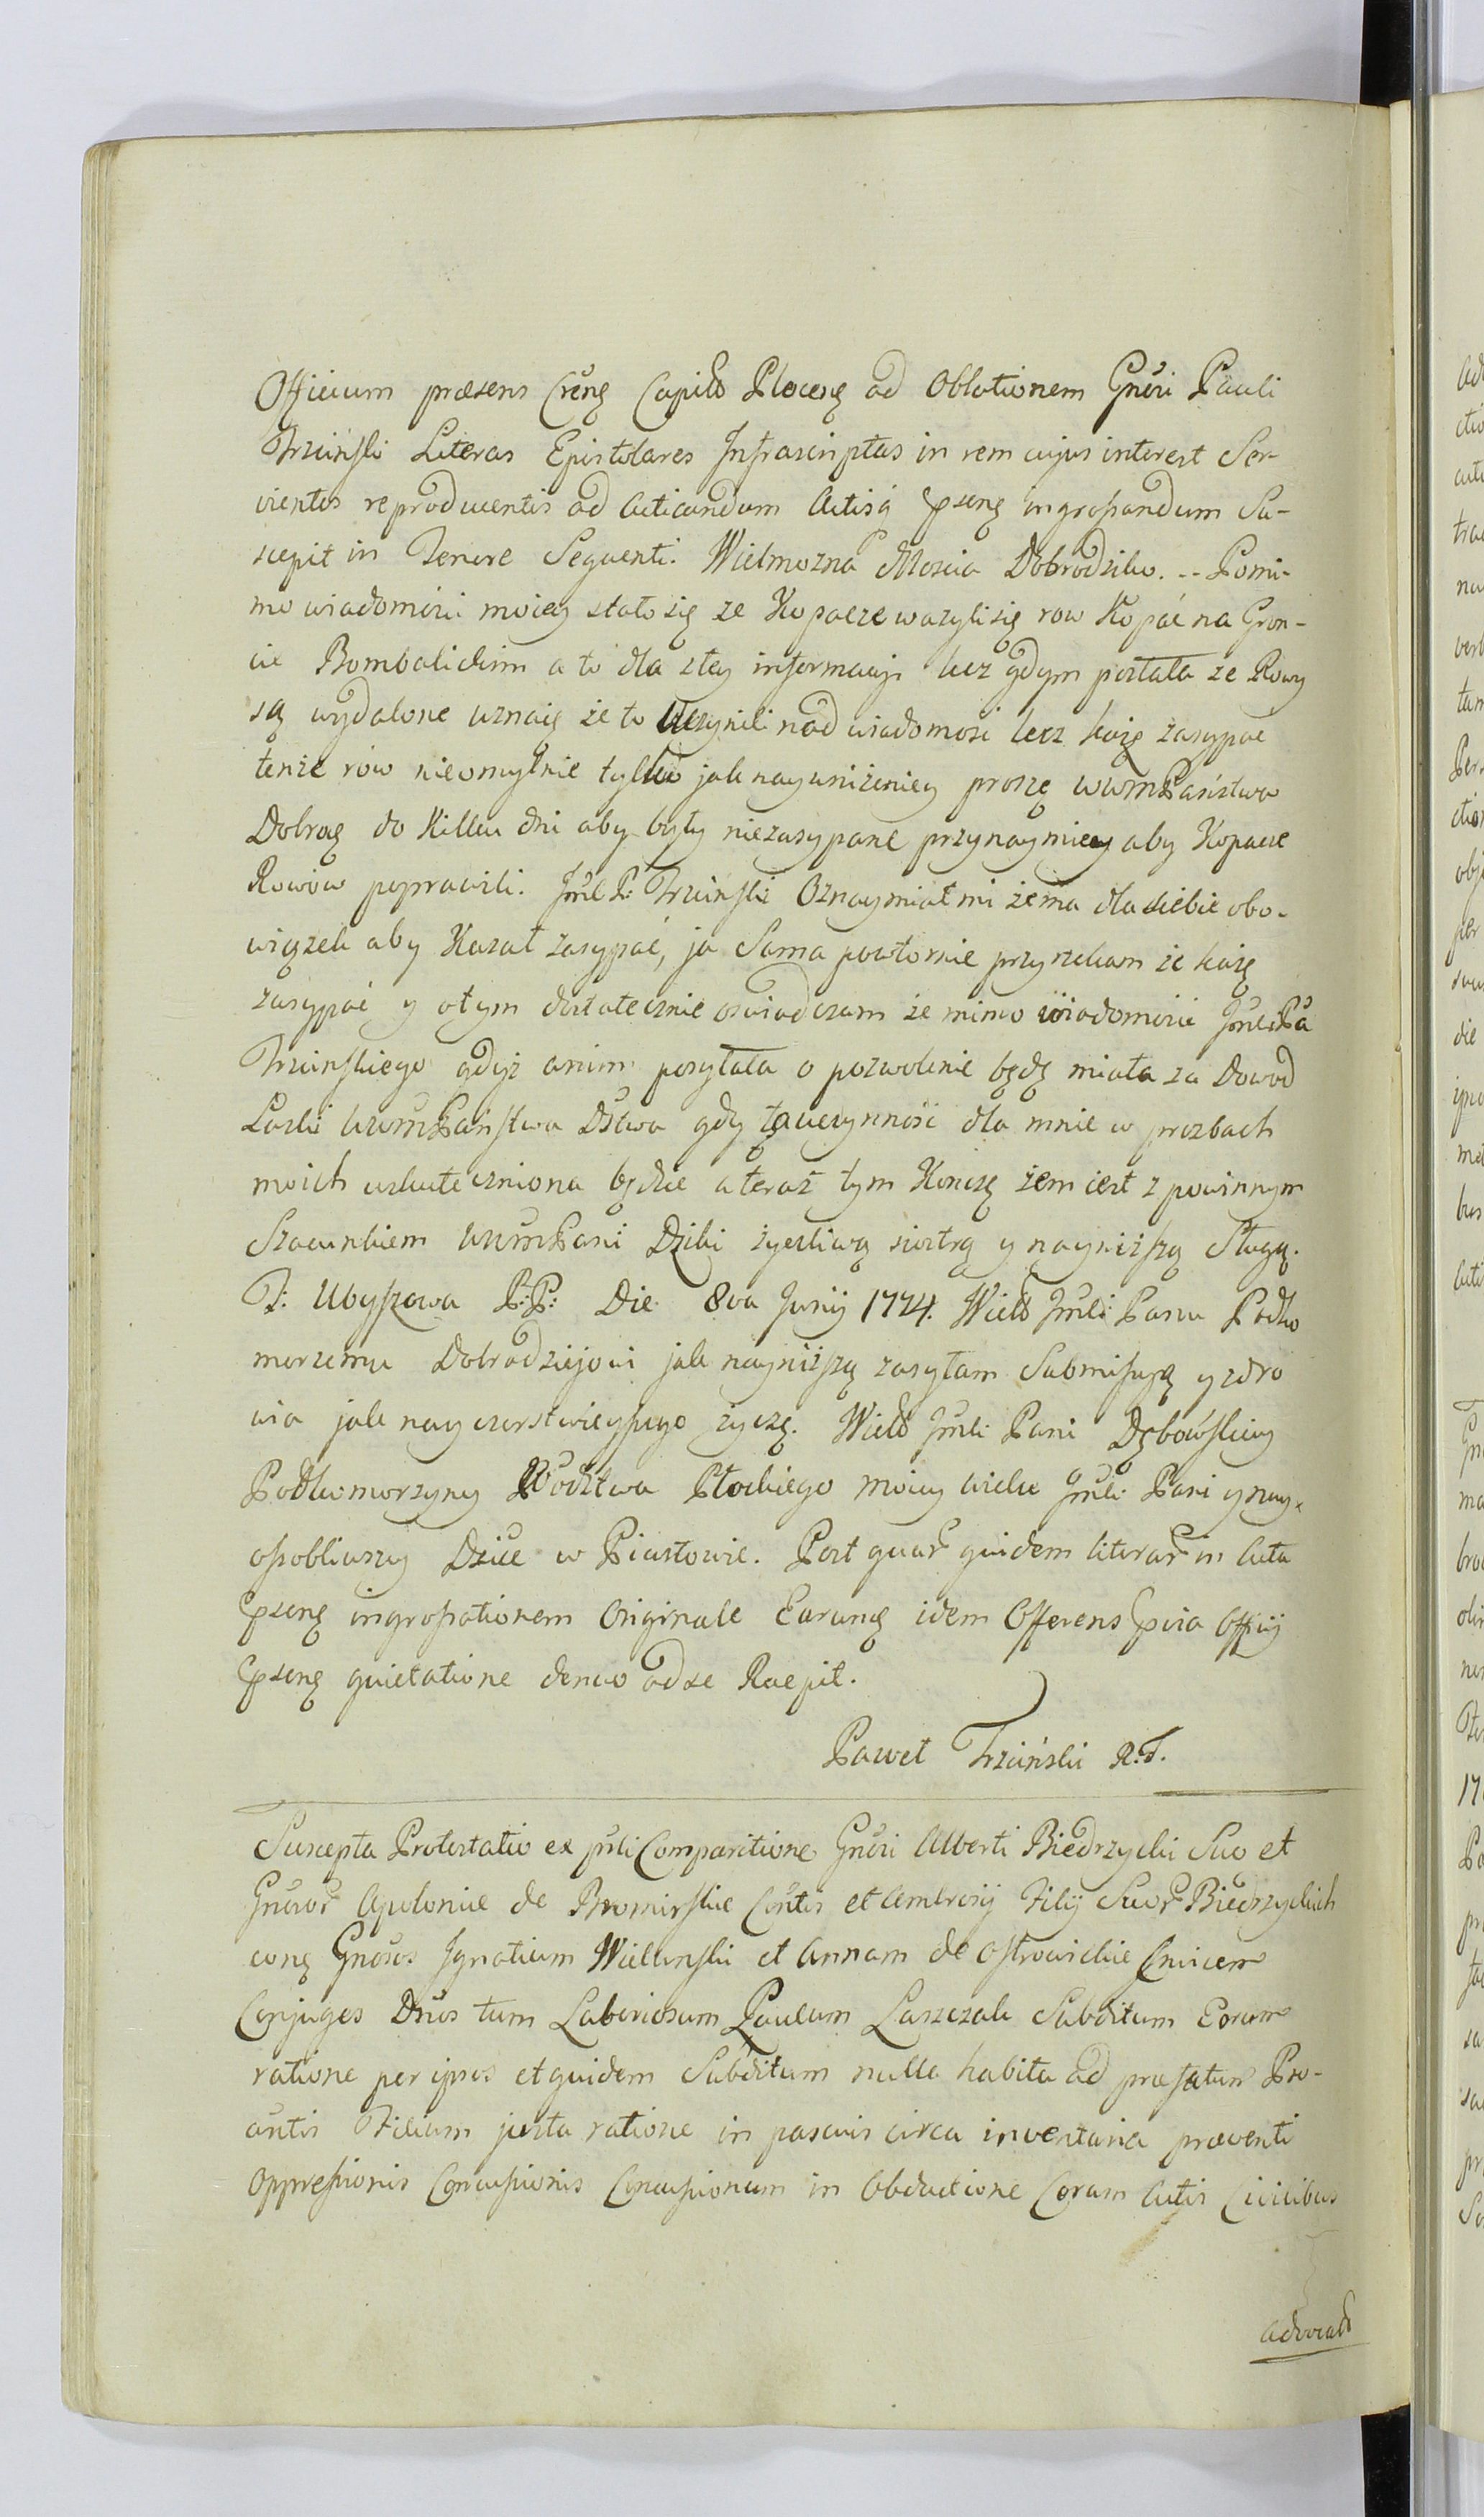 Officium præsens Crẽnę Capitło Plocenę ad Oblationem Gnõri Pauli
Trzcinski Literas Epistolares Infrascriptas in rem cujus interest Ser-
vientes reproducentis ad acticandum Actisq pscnę ingrossandum Su-
scepit in Tenore Sequenti. Wielmozna Mościa Dobrodziko. -- Pomi-
mo wiadomości moiey stało się ze Kopacze wazyli się row Kopać na Gron-
cie Bombalickim a to dla złey informacyi lecz gdym posłała ze Rowy
są wydalone uznaię że to Uczynili nad wiadomość lecz każę zasypać
tenże rów nieomylnie tylko jak nayuniżeniey proszę WWmPaństwa
Dobraę do Kilku dni aby były niezasypane przynaymiey aby Kopacze
Rowów poprawili. Jmć P: Trzcinski Oznaymiał mi że ma dla siebie obo-
wiązek aby Kazał zasypać, ja Sama powtornie przyrzekam że każę
zasypać y o tym dostatecznie oswiadczam że mimo wiadomości Jmć Pa
Trzcinskiego gdyż anim posyłała o pozwolenie będę miała za Dowod
Łaski WWmPaństwa Dstwa gdy ta uczynność dla mnie w prozbach
moich uskuteczniona będzie a teraz tym Koniczę żem iest z powinnym
Szacunkiem WWmPani Dziki życzliwą siostrą y nayniższą Sługą.
T: Ubyszowa P:P: Die 8va Junij 1774. Wielo Jmći Panu Podko
morzemu Dobrodziejowi jak nayniższą zasyłam Submissyą y zdro
wia jak nayczerstwieyszego życzę. Wielo Jmći Pani Dębowskiey
Podkomorzyny Wodztwa Płockiego moiey wielce Jmći Pani y nay-
osobliwszey Dzice w Piastowie. Post quar quidem literar in Acta
pscnę ingrossationem Originale Earunę idem Offerens pvia Officij
pscnę quietatione denuo ad se Recepit.
Paweł Trzcinski R.T.
Suscepta Protestatio ex psti Comparitione Gnõri Alberti Biedrzycki Suo et
Gnõror Apolonice de Bromirskie Cõntis et Ambrosij Filij Suor Biedrzyckich
conę Gnõsos Ignatium Wielinski et Annam de Ostrowickie Cmicem
Conjuges Dnos tum Laboriosum Paulum Laszczak Subditum Eorum
ratione per ipsos et quidem Subditum nulla habita ad præfatum Pro-
antis Filium justa ratione in pascuis circa inventaria præventi
Oppressionis Concussionis Concussionum in Obductione Coram Actis Civilibus
advocato